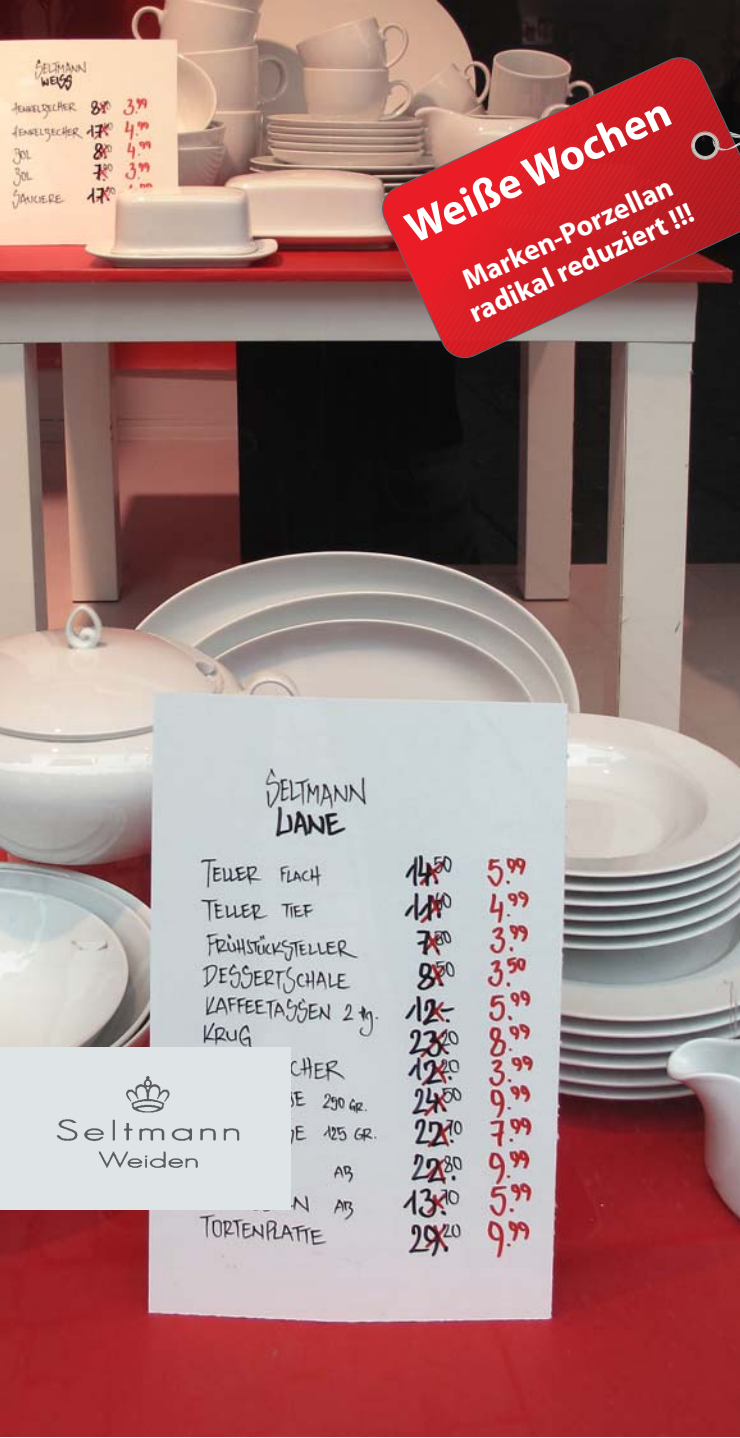 SELTMANN
WEISS
HENKELBECHER 8 3.99
HENKELBECHER 17 4.99
BOL 8 4.99
BOL 7 3.99
SAUCIERE 17
Weiße Wochen
Marken-Porzellan
radikal reduziert !!!
SELTMANN
LIANE
TELLER FLACH 14.50 5.99
TELLER TIEF 11.60 4.99
FRÜHSTÜCKSTELLER 7.80 3.99
DESSERTSCHALE 8.50 3.50
KAFFEETASSEN 2 tg. 12.- 5.99
KRUG 23.20 8.99
CHER 12.20 3.99
E 250 GR. 24.50 9.99
E 125 GR. 22.70 7.99
AB 22.80 9.99
N AB 13.70 5.99
TORTENPLATTE 29.20 9.99
Seltmann
Weiden